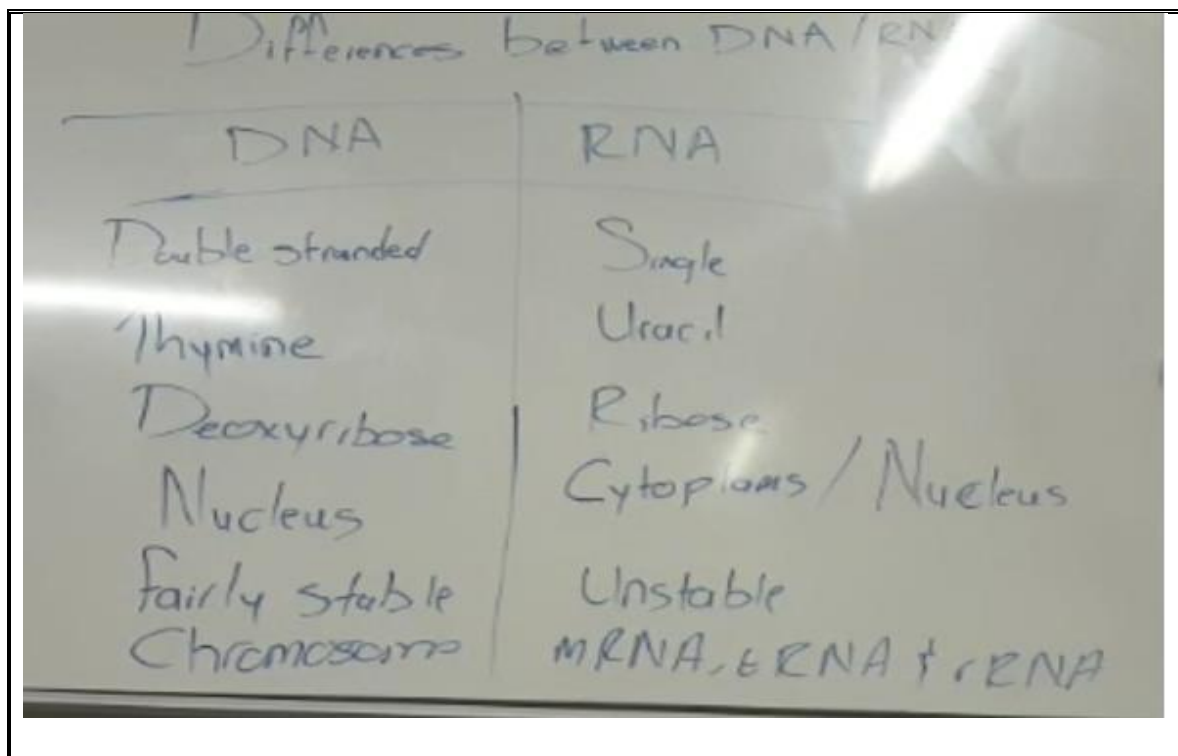 Differences between DNA/RN
DNA RNA
Double stranded Single
Thymine Uracil
Deoxyribose Ribose
Nucleus Cytoplams / Nucleus
fairly stable Unstable
Chromosome mRNA, tRNA & rRNA